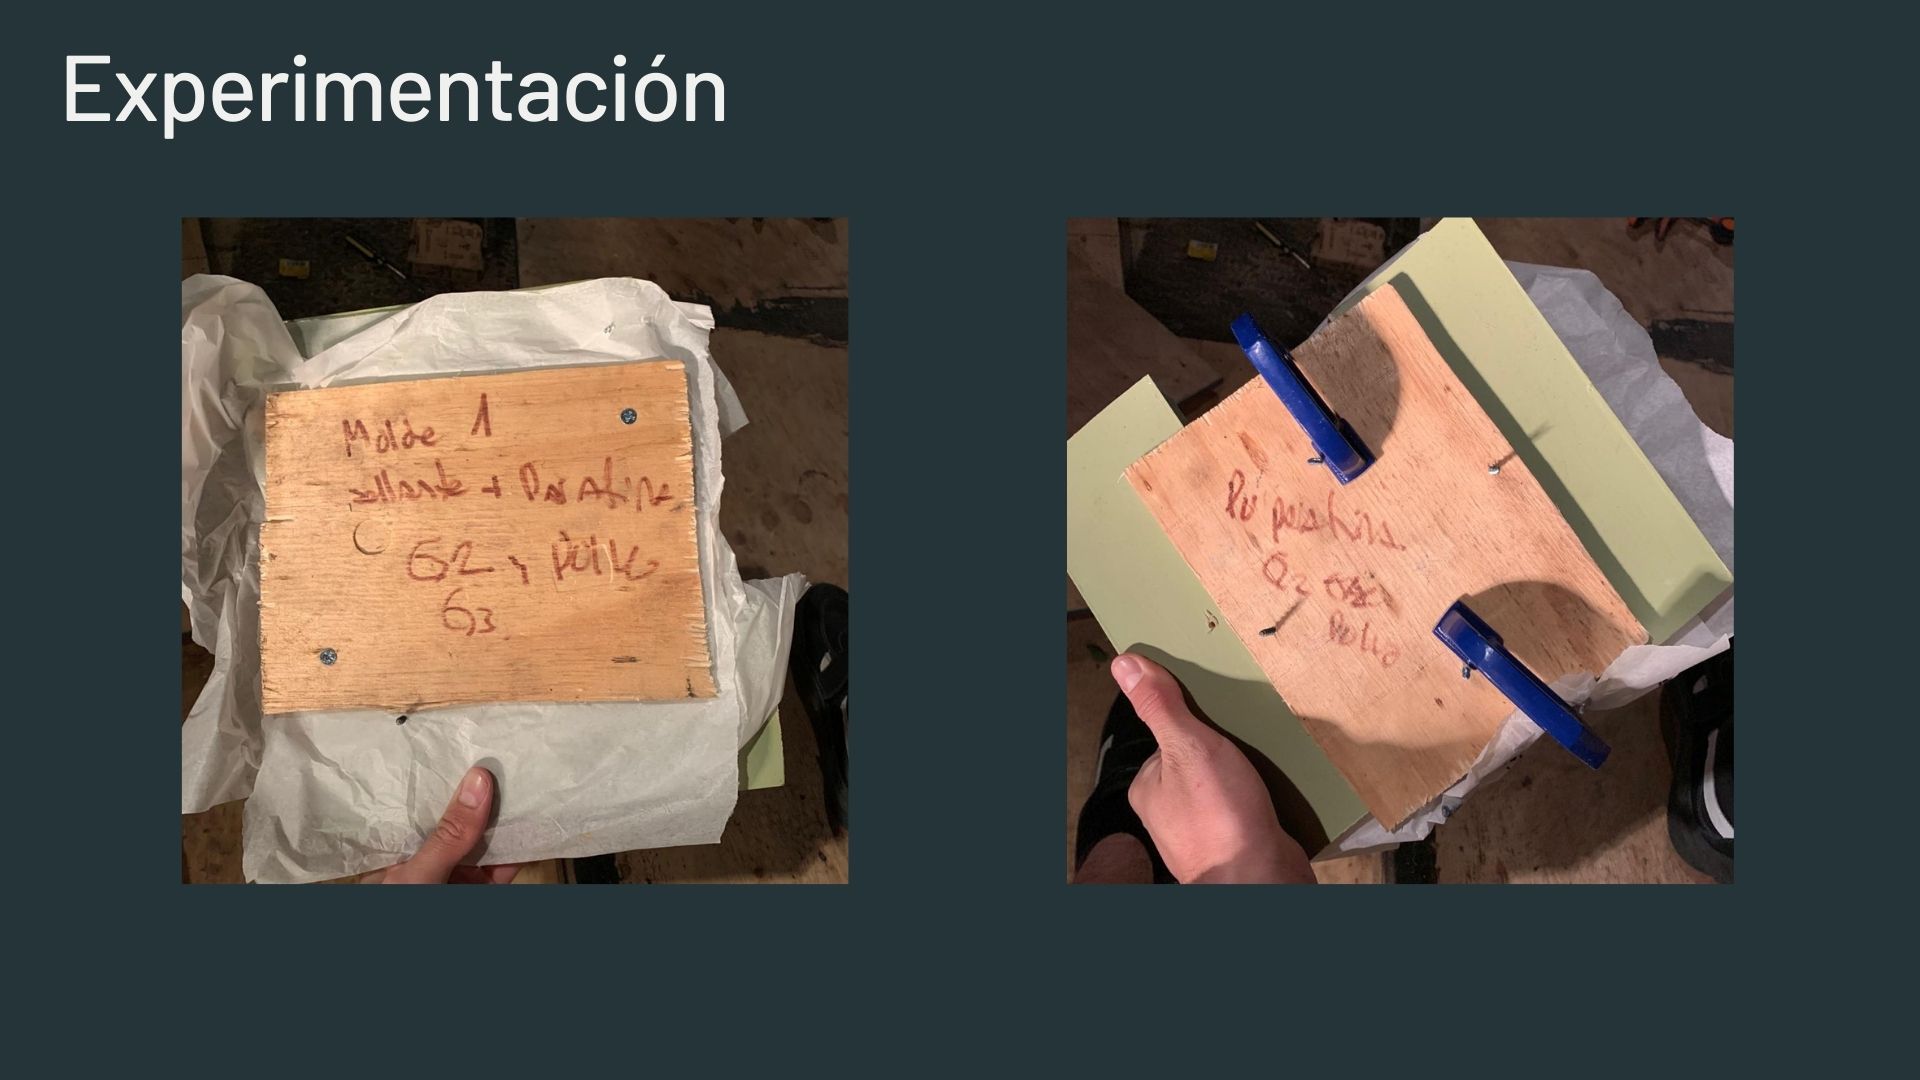 Experimentación
Molde 1
sellante + Parafina
G2 y Polvo
G3
parafina
G2
Polvo